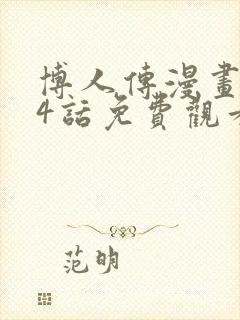 博人傳漫畫
4話免費觀
范明